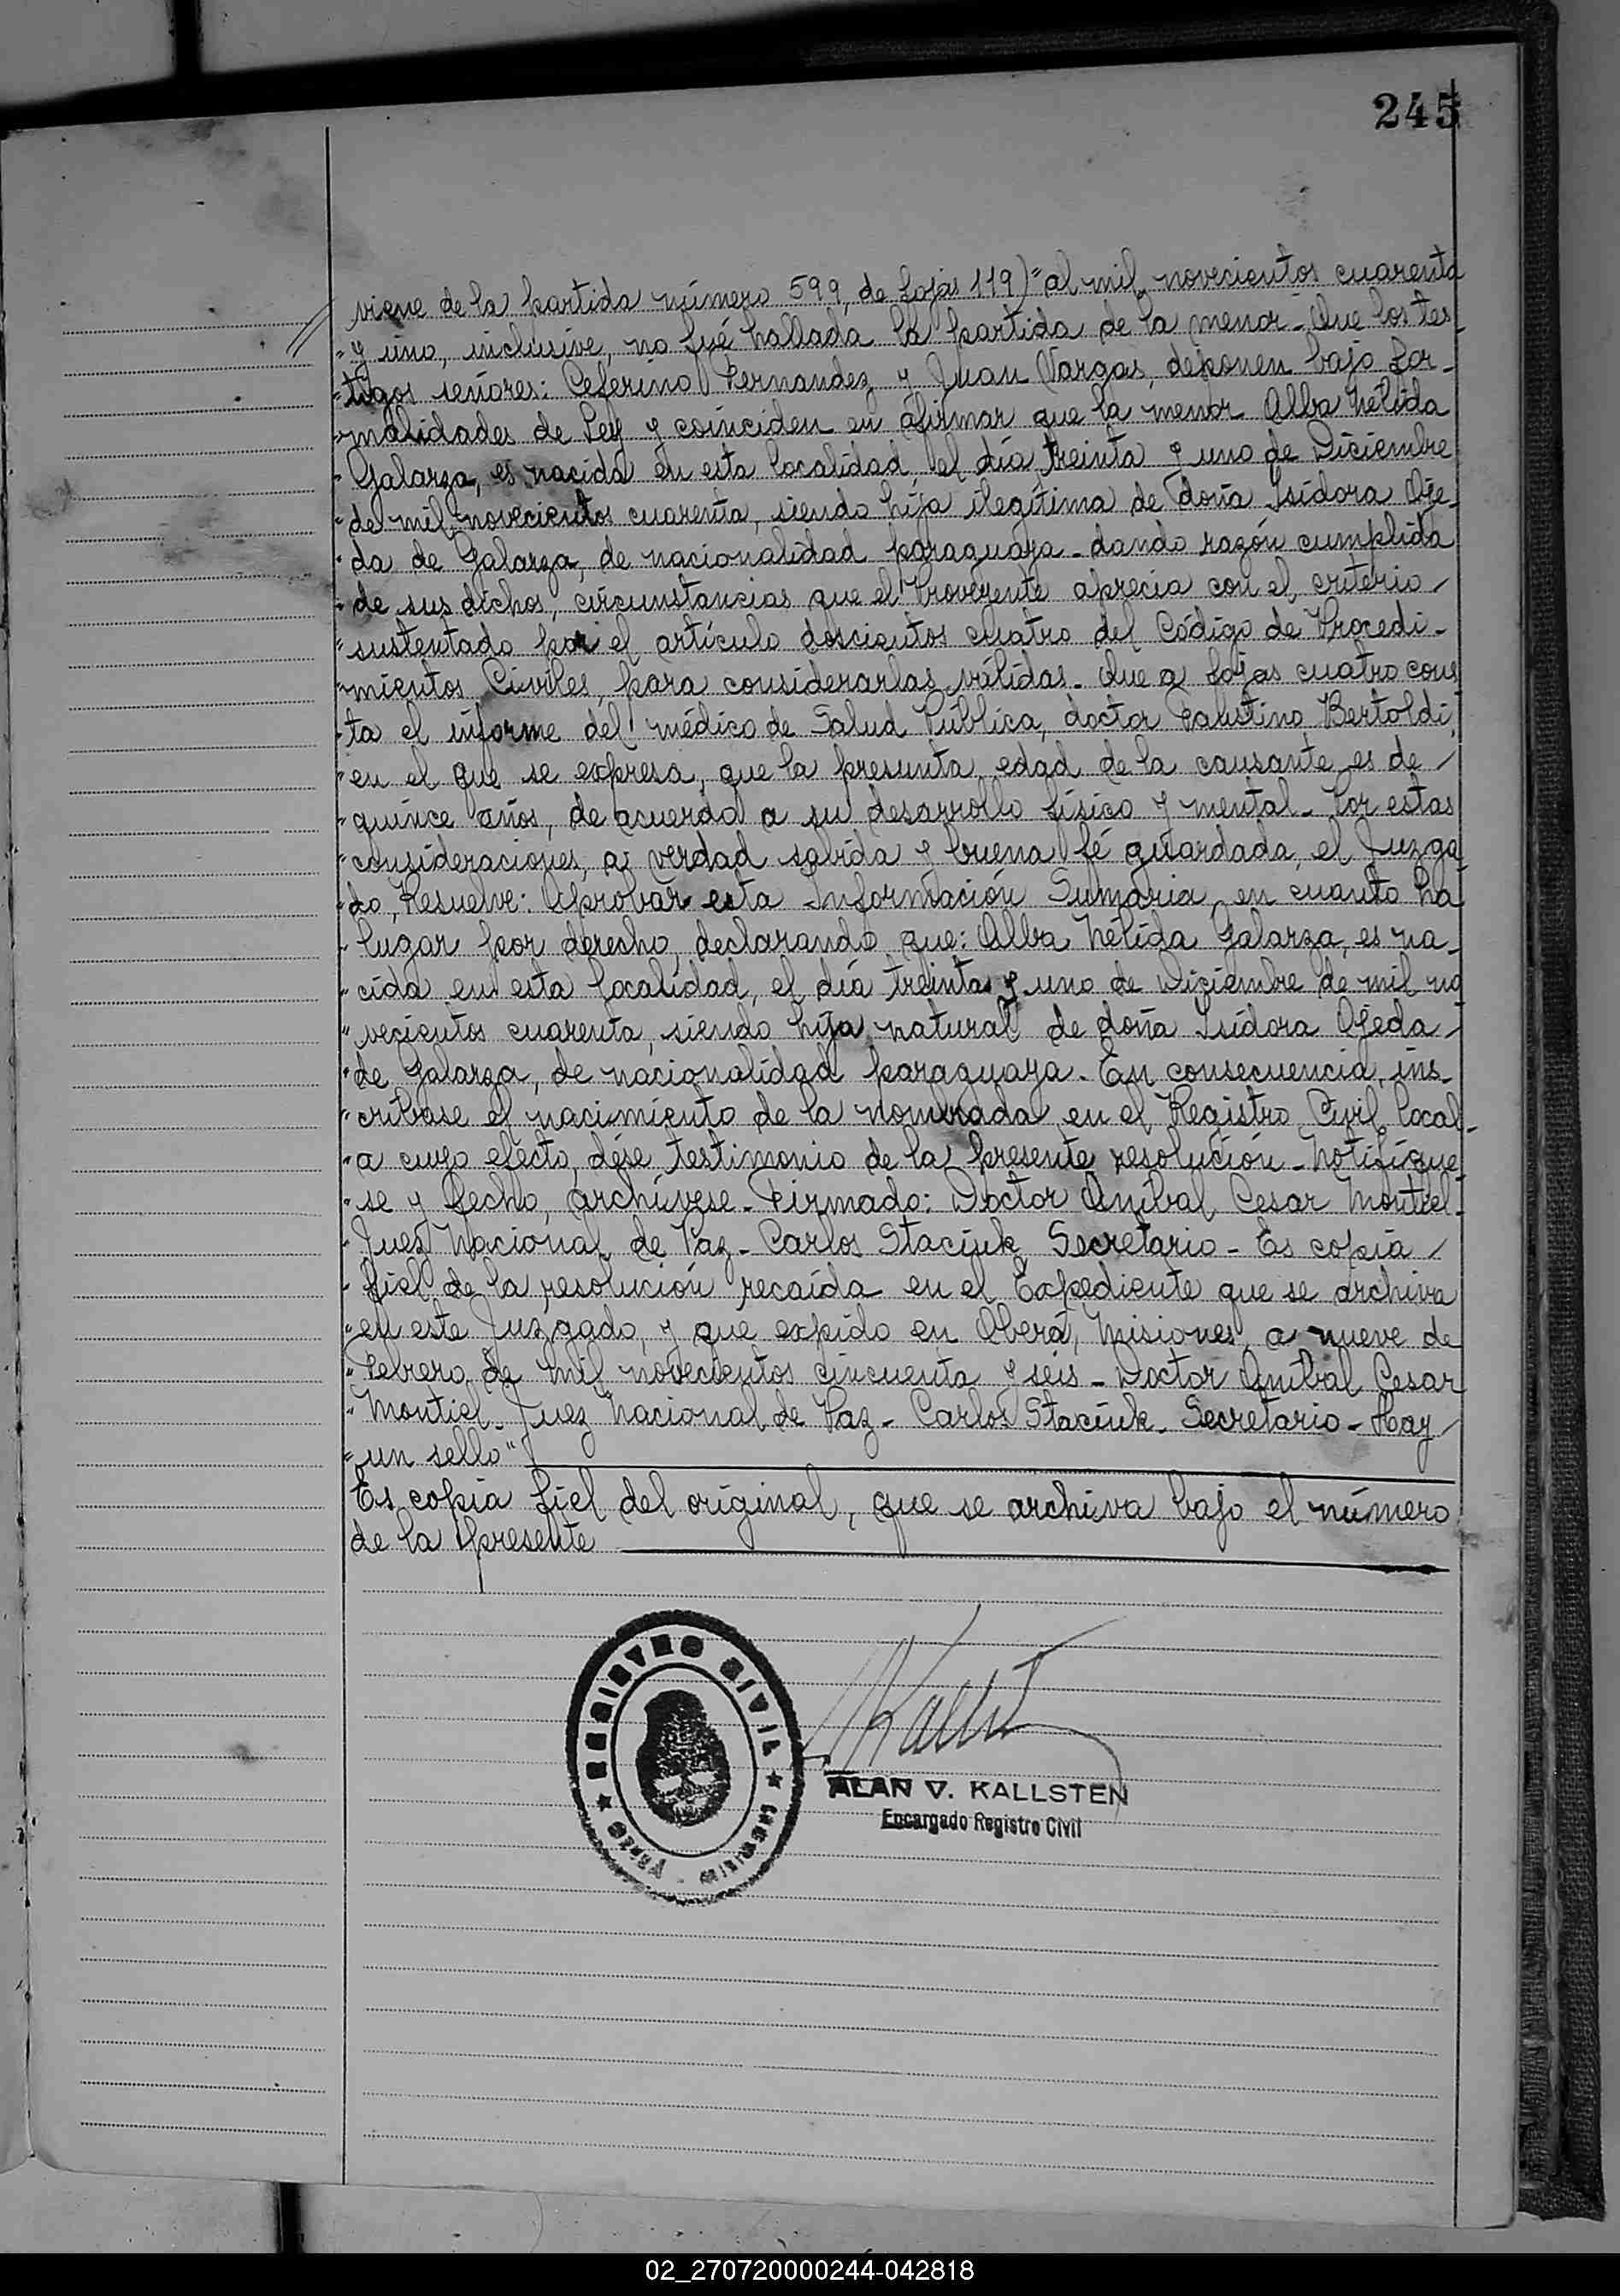 245
viene de la partida número 599, de fojas 119) "al mil novecientos cuarenta
" y uno, inclusive, no fué hallada la partida de la menor - Que los tes
" tigos señores: Ceferino Fernandez y Juan Vargas, deponen bajo for-
" malidades de Ley y coinciden en afirmar que la menor Alba Nélida
" Galarza, es nacida en esta localidad, el día treinta y uno de Diciembre
" de mil novecientos cuarenta, siendo hija ilegítima de doña Isidora Oje-
" da de Galarza, de nacionalidad paraguaya - dando razón cumplida
" de sus dichos, circunstancias que el Proveyente aprecia con el criterio /
" sustentado por el artículo doscientos cuatro del Código de Procedi-
" mientos Civiles, para considerarlas válidas - Que a fojas cuatro cons
" ta el informe del médico de Salud Pública, doctor Faustino Bertoldi,
" en el que se expresa, que la presunta edad de la causante es de /
" quince años, de acuerdo a su desarrollo físico y mental - Por estas
" consideraciones, a verdad sabida y buena fé guardada, el Juzga
" do, Resuelve: Aprobar esta Información Sumaria en cuanto ha
" lugar por derecho, declarando que: Alba Nélida Galarza, es na-
" cida en esta localidad, el día treinta y uno de Diciembre de mil no
" vecientos cuarenta, siendo hija natural de doña Isidora Ojeda /
" de Galarza, de nacionalidad paraguaya - En consecuencia, ins-
" críbase el nacimiento de la nombrada en el Registro Civil local -
" a cuyo efecto, dése testimonio de la presente resolución - Notifíque
" se y fecho, archívese - Firmado: Doctor Anibal Cesar Montiel -
" Juez Nacional de Paz - Carlos Staciuk Secretario - Es copia /
" fiel de la resolución recaída en el Expediente que se archiva
" en este Juzgado, y que expido en Oberá, Misiones, a nueve de
" Febrero de mil novecientos cincuenta y seis - Doctor Anibal Cesar
" Montiel - Juez Nacional de Paz - Carlos Staciuk - Secretario - Hay /
" un sello"
Es copia fiel del original, que se archiva bajo el número
de la presente
REGISTRO CIVIL
OBERÁ - MISIONES
Kallst
ALAN V. KALLSTEN
Encargado Registro Civil
02_270720000244-042818